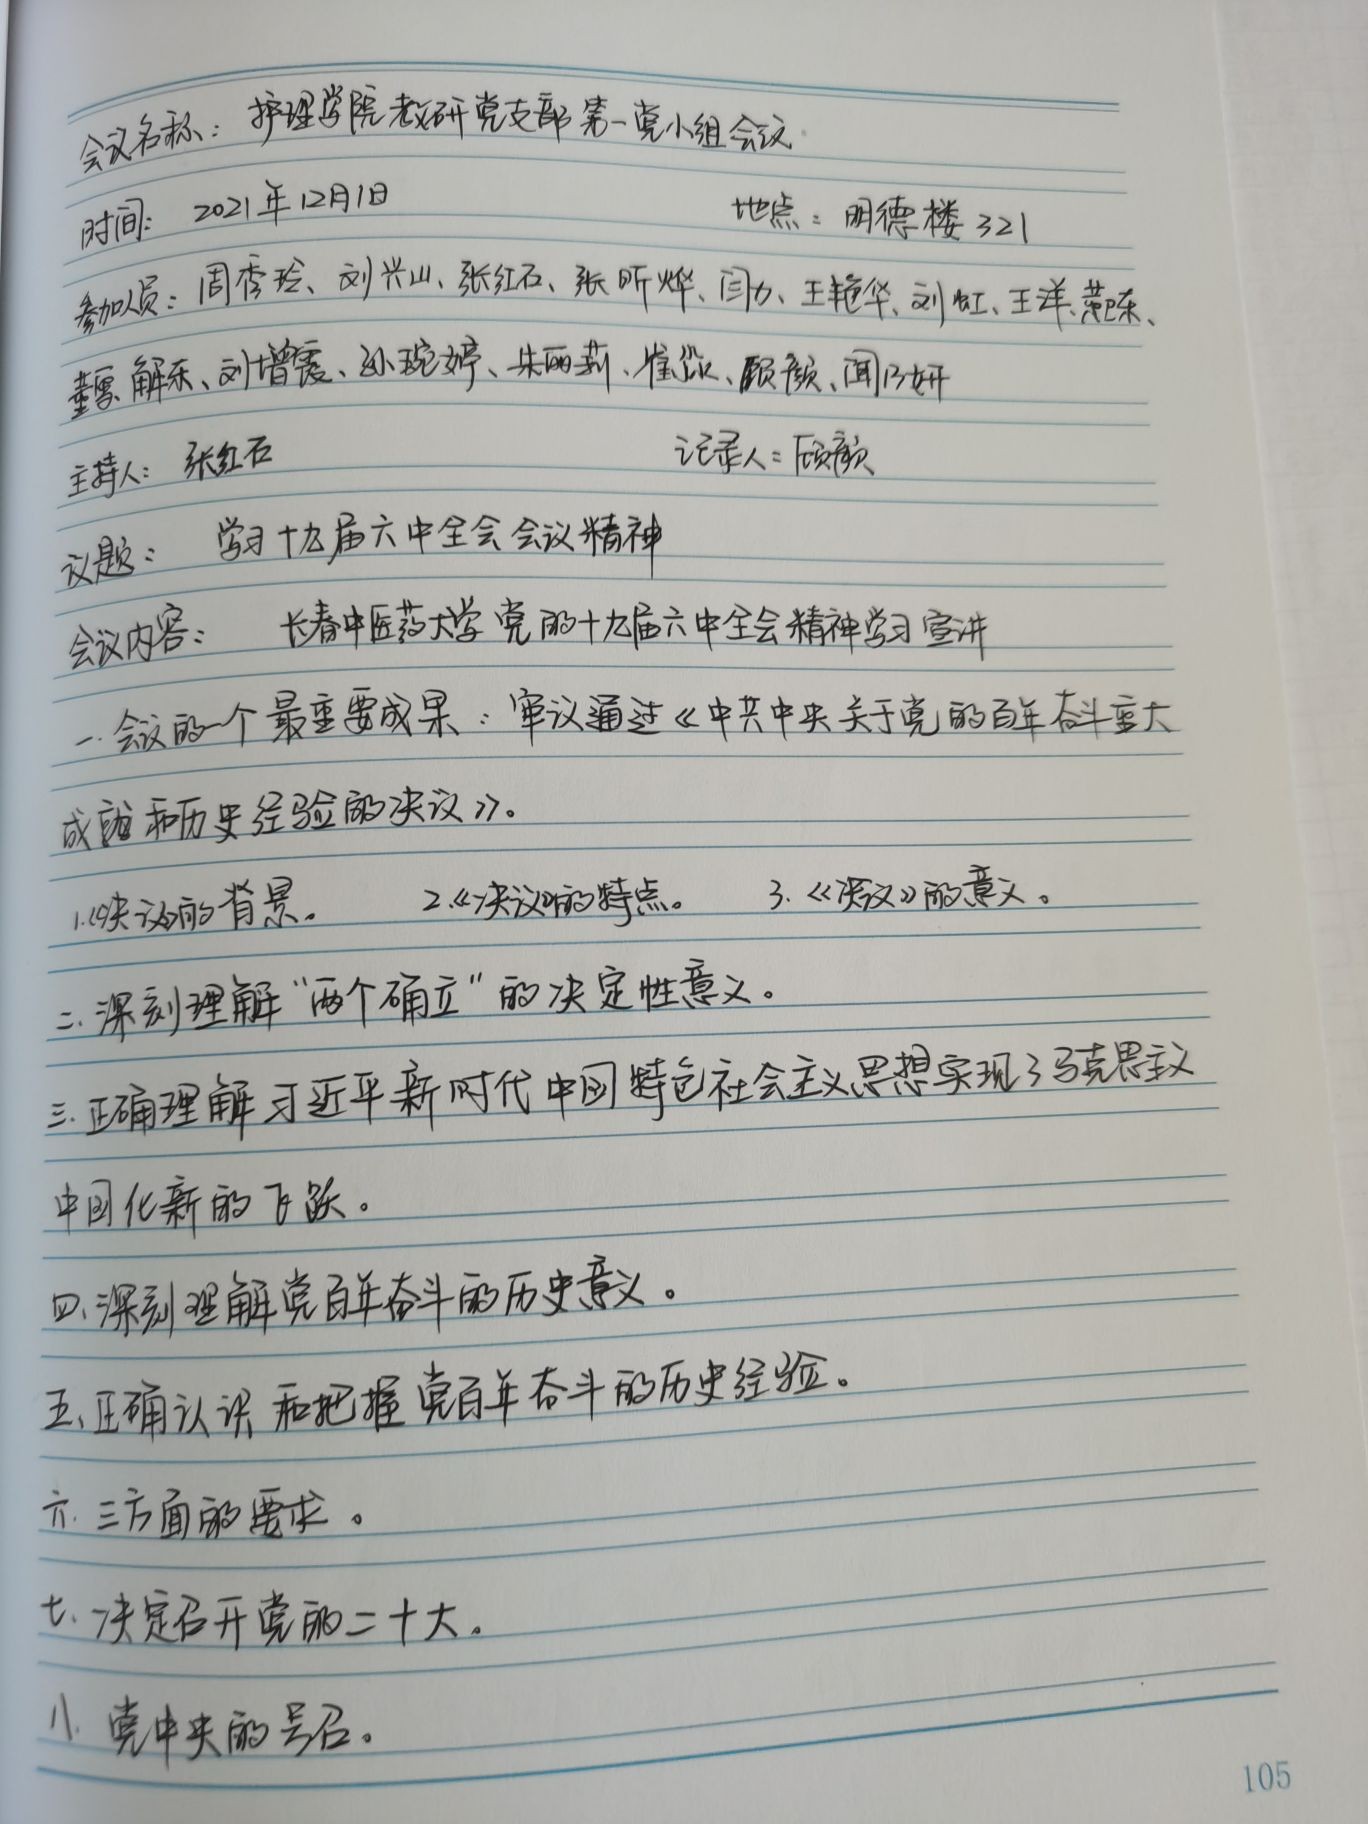 会议名称：护理学院教研党支部第一党小组会议
时间：2021年12月1日 地点：明德楼321
参加人员：周秀玲、刘兴山、张红石、张昕烨、闫力、王艳华、刘虹、王洋、范东、
董雪、解东、刘增霞、孙琬婷、朱丽莉、崔、顾颜、闻乃妍
主持人：张红石 记录人：顾颜
议题：学习十九届六中全会会议精神
会议内容：长春中医药大学党的十九届六中全会精神学习宣讲
一.会议的一个最重要成果：审议通过《中共中央关于党的百年奋斗重大
成就和历史经验的决议》。
1.《决议》的背景。 2.《决议》的特点。 3.《决议》的意义。
二.深刻理解“两个确立”的决定性意义。
三.正确理解习近平新时代中国特色社会主义思想实现了马克思主义
中国化新的飞跃。
四、深刻理解党百年奋斗的历史意义。
五、正确认识和把握党百年奋斗的历史经验。
六.三方面的要求。
七.决定召开党的二十大。
八.党中央的号召。
105